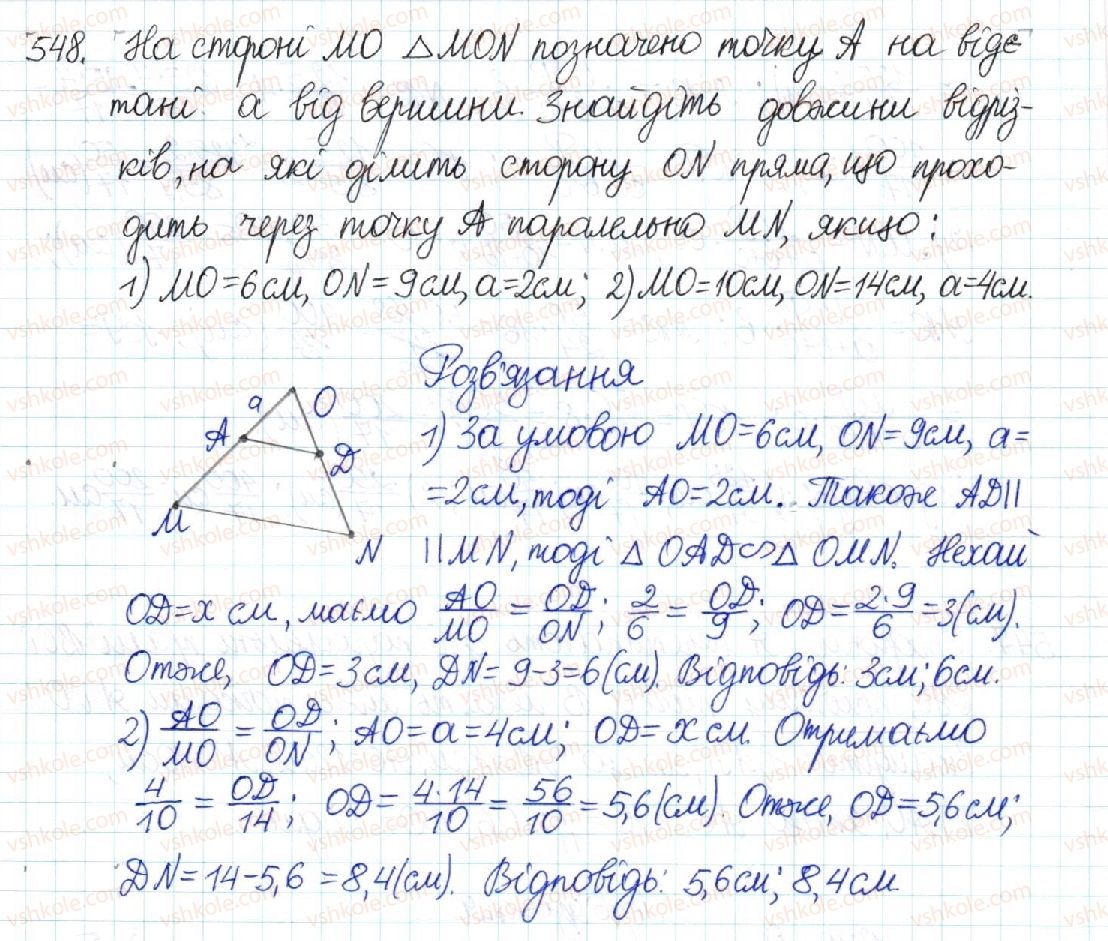 548. На стороні MO △MON позначено точку A на відс
тані a від вершини. Знайдіть довжини відріз-
ків, на які ділить сторону ON пряма, що прохо-
дить через точку A паралельно MN, якщо:
1) MO=6см, ON=9см, a=2см; 2) MO=10см, ON=14см, a=4см.
Розв'язання
a
O
A
D
M
N
1) За умовою MO=6см, ON=9см, a=
=2см, тоді AO=2см. Також AD||
||MN, тоді △ OAD∽△ OMN. Нехай
OD=x см, маємо AO/MO = OD/ON; 2/6 = OD/9; OD= 2·9/6 =3(см).
Отже, OD=3см, DN= 9-3=6(см). Відповідь: 3см; 6см.
2) AO/MO = OD/ON; AO=a=4см; OD=x см. Отримаємо
4/10 = OD/14; OD= 4·14/10 = 56/10 =5,6(см). Отже, OD=5,6см;
DN=14-5,6=8,4(см). Відповідь: 5,6см; 8,4см
vshkole.com